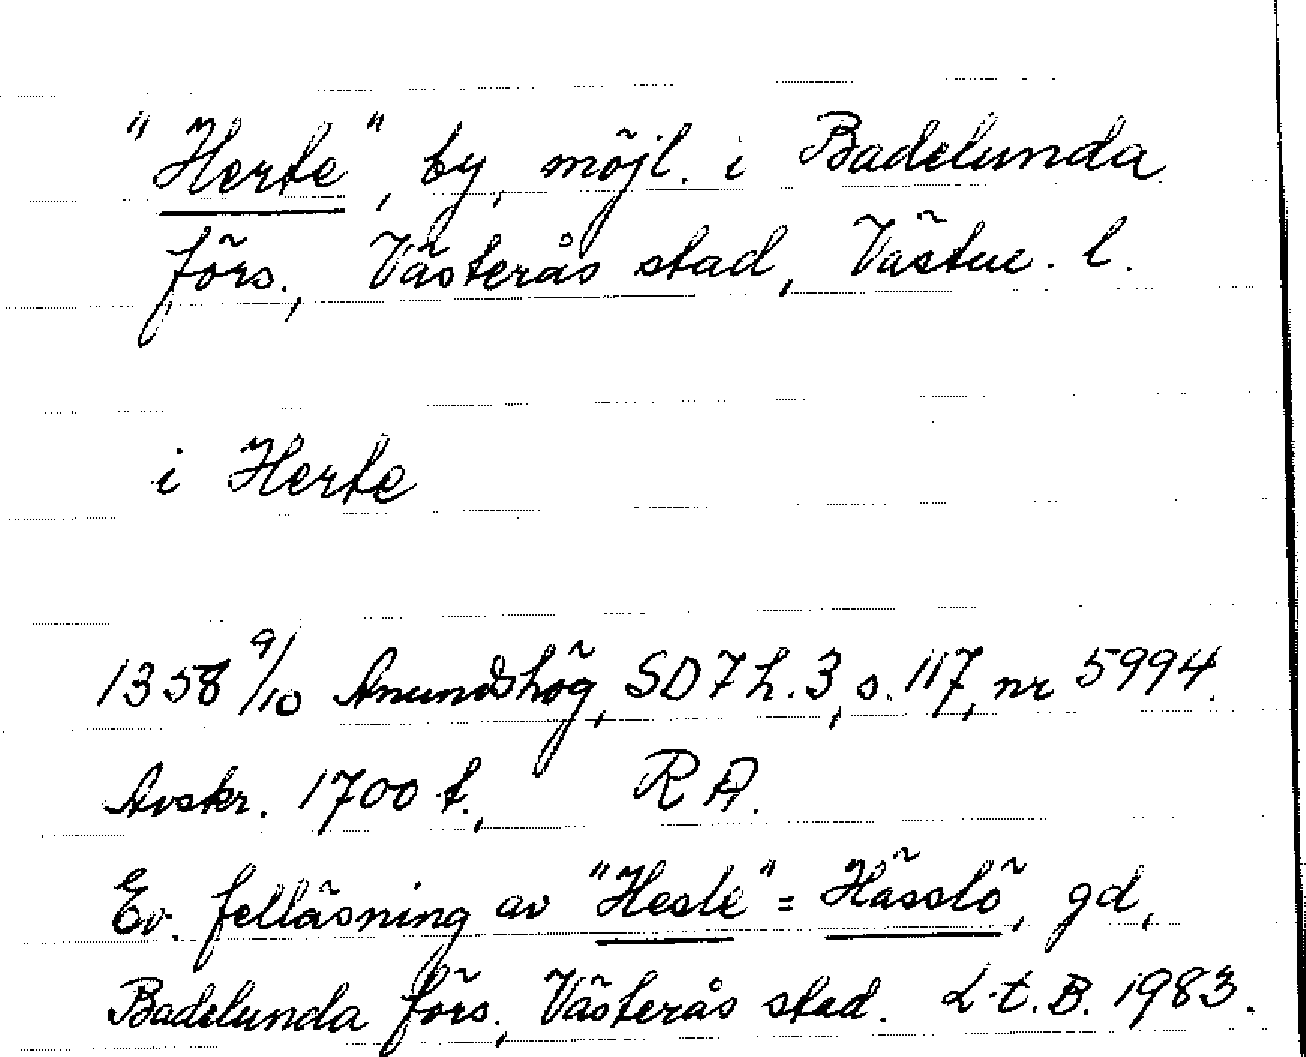 "Herte", by, möjl. i Badelunda
förs., Västerås stad, Västm. l.
i Herte
1358 9/10 Anundshög, SD 7 h. 3, s. 117, nr 5994.
Avskr. 1700 t., RA.
Ev. felläsning av "Hesle" = Hässlö, gd,
Badelunda förs., Västerås stad. L.t.B. 1983.